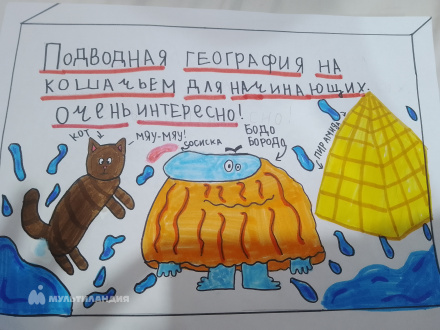 Подводная география на
кошачьем для начинающих.
Очень интересно!
кот
мяу-мяу!
сосиска
Бодо
Бородо
пирамида
Мультиландия